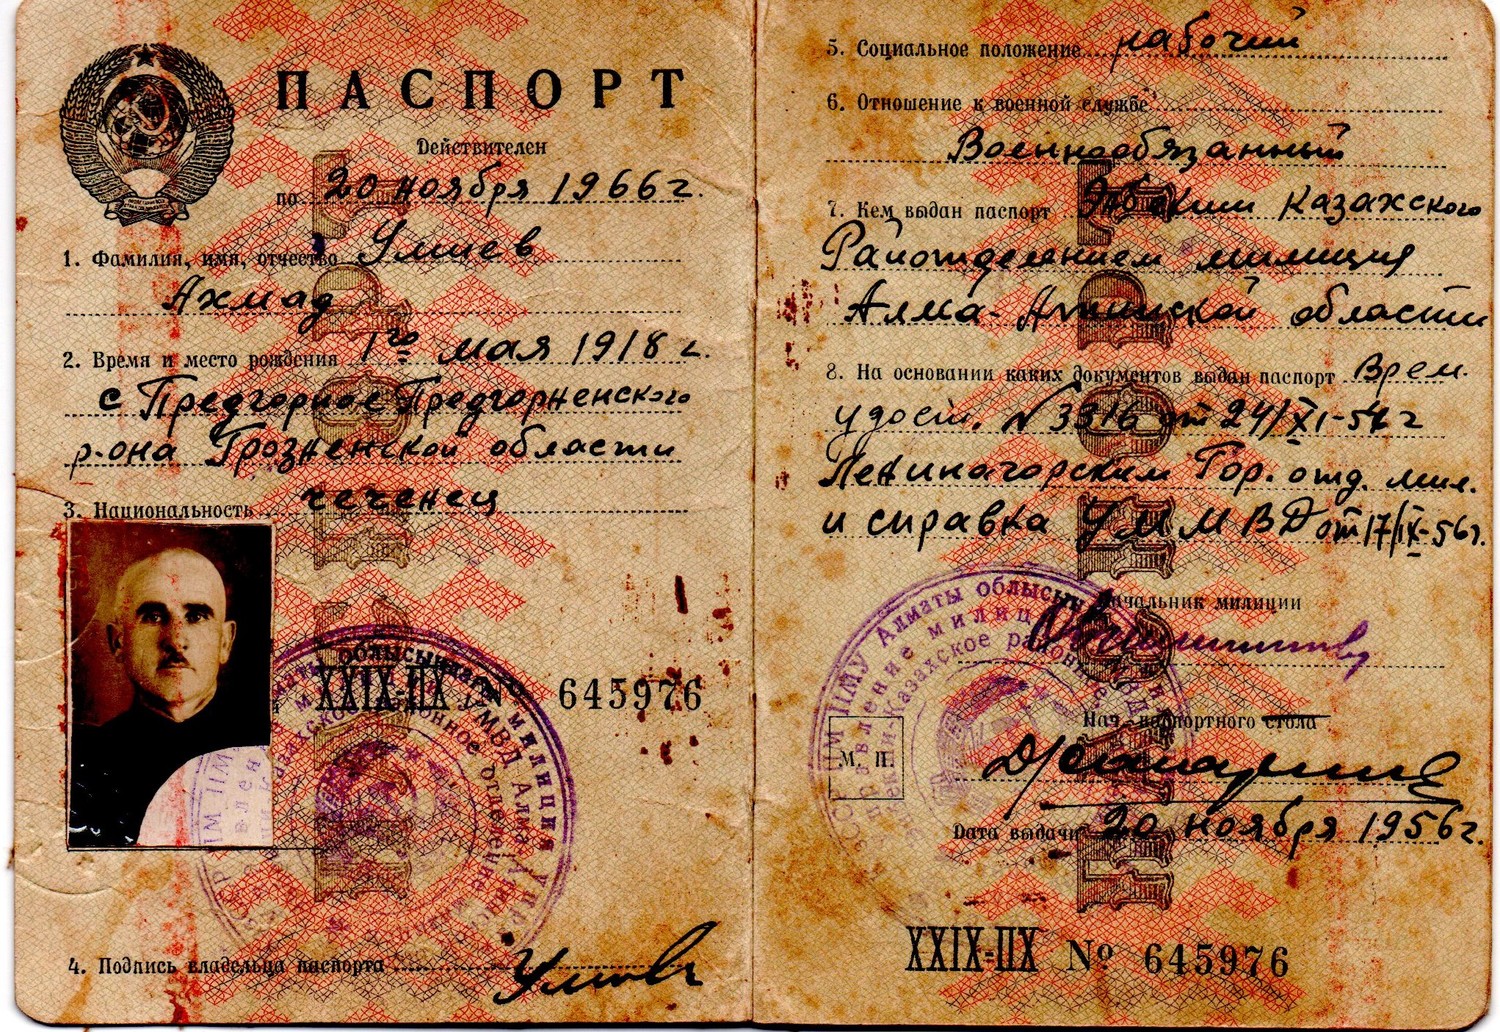 ПАСПОРТ
Действителен
по 20 ноября 1966 г.
1. Фамилия, имя, отчество Умиев
Ахмад
2. Время и место рождения 1го мая 1918 г.
с Предгорное Предгорненского
р-она Грозненской области
3. Национальность чеченец
XXIX-ПХ № 645976
4. Подпись владельца паспорта
5. Социальное положение рабочий
6. Отношение к военной службе
Военнообязанный
7. Кем выдан паспорт Казахского
Райотделением милиции
Алма-Атинской области
8. На основании каких документов выдан паспорт Врем.
удост. № 3316 от 24/XI-54 г
Лениногорским Гор. отд. мил.
и справка УМ МВД от 17/IX-56 г.
Начальник милиции
Нач. паспортного стола
М. П.
Дата выдачи 20 ноября 1956 г.
XXIX-ПХ № 645976